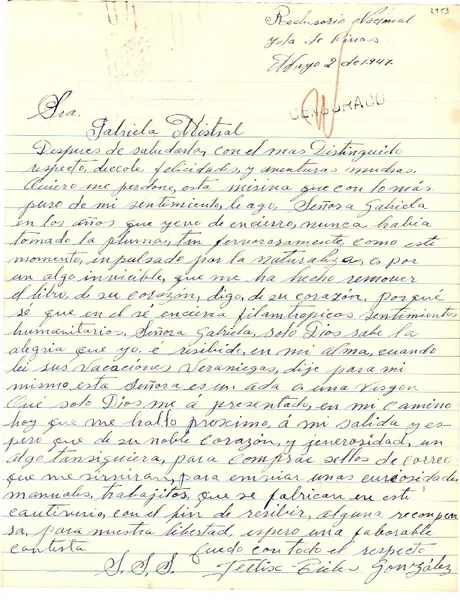 2953
Reclusorio Nacional
Isla de Pinos
Mayo 2 de 1947.
CENSURADO
Sra.
Gabriela Mistral
Despues de saludarla, con el mas Distinguido
respecto, deceole felicidades, y aventuras muchas.
Quiero me perdone, esta misiva que con lo más
puro de mi sentimiento, le ago. Señora Gabriela
en los años que yevo de encierro, nunca habia
tomado la pluma, tan fervorosamente, como este
momento, inpulsado por la naturaliza, o por
un algo invicible, que me ha hecho remover
el libro, de su corazon, digo, de su corazón, porqué
se que en el sé encierra filantropicos sentimientos
humanitarios, Señora Gabriela, solo Dios sabe la
alegria que yo, é resibido, en mi alma, cuando
lei sus vacaciones Veraniegas, dije para mi
mismo esta Señora es un ada o una Virgen
Qué solo Dios me á presentado, en mi camino
hoy que me hallo proximo, á mi salida y es-
peró que de su noble corazón, y jenerosidad, un
algo tansiquiera, para comprar sellos de correo
que me sirviran, para enviar unas curiosidades
manuales, trabajitos, que se fabrican en este
cautiverio, con el fin de resibir, alguna recompen
sa, para nuestra libertad, espero una faborable
contesta
Quedo con todo el respecto
S. S. S.
González